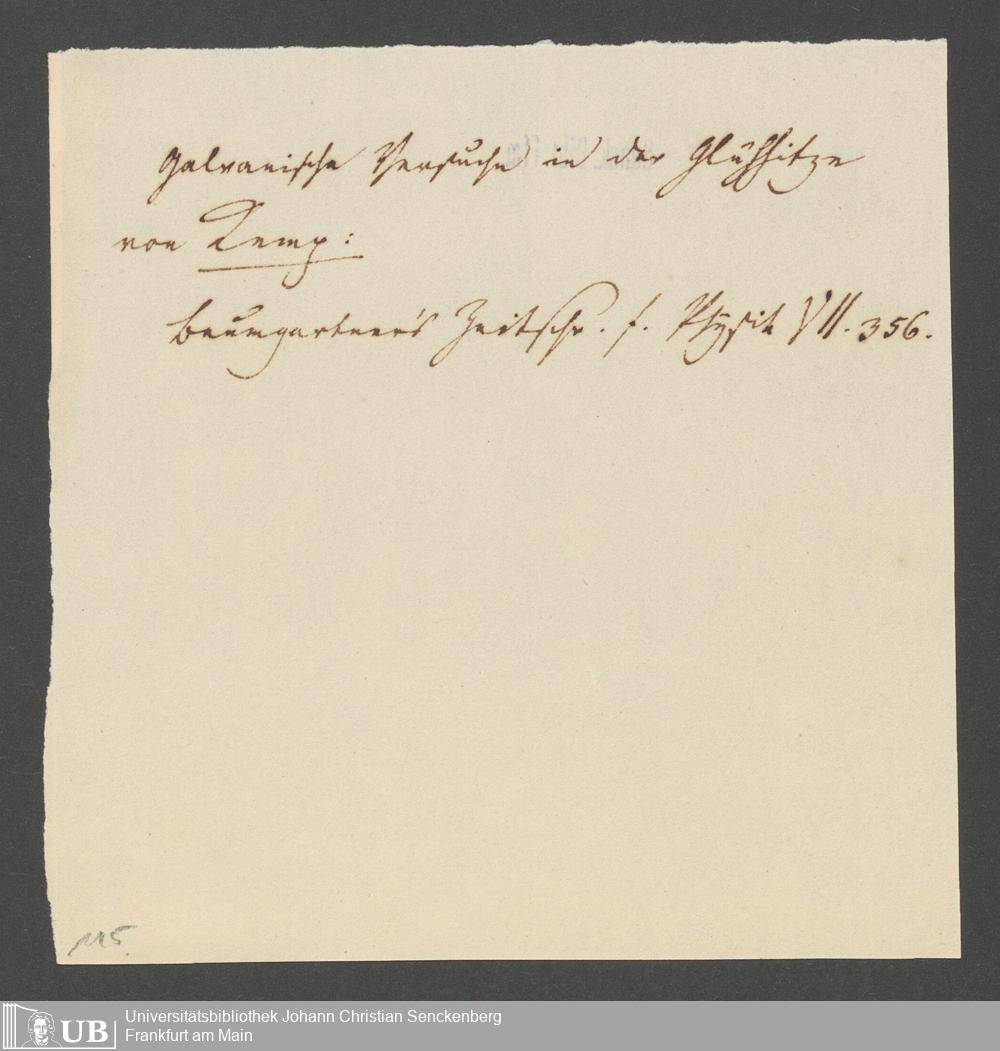 Galvanische Versuche in der Glühhitze
von Kemp:
Baumgartner's Zeitschr. f. Physik VII. 356.
115
UB
Universitätsbibliothek Johann Christian Senckenberg
Frankfurt am Main